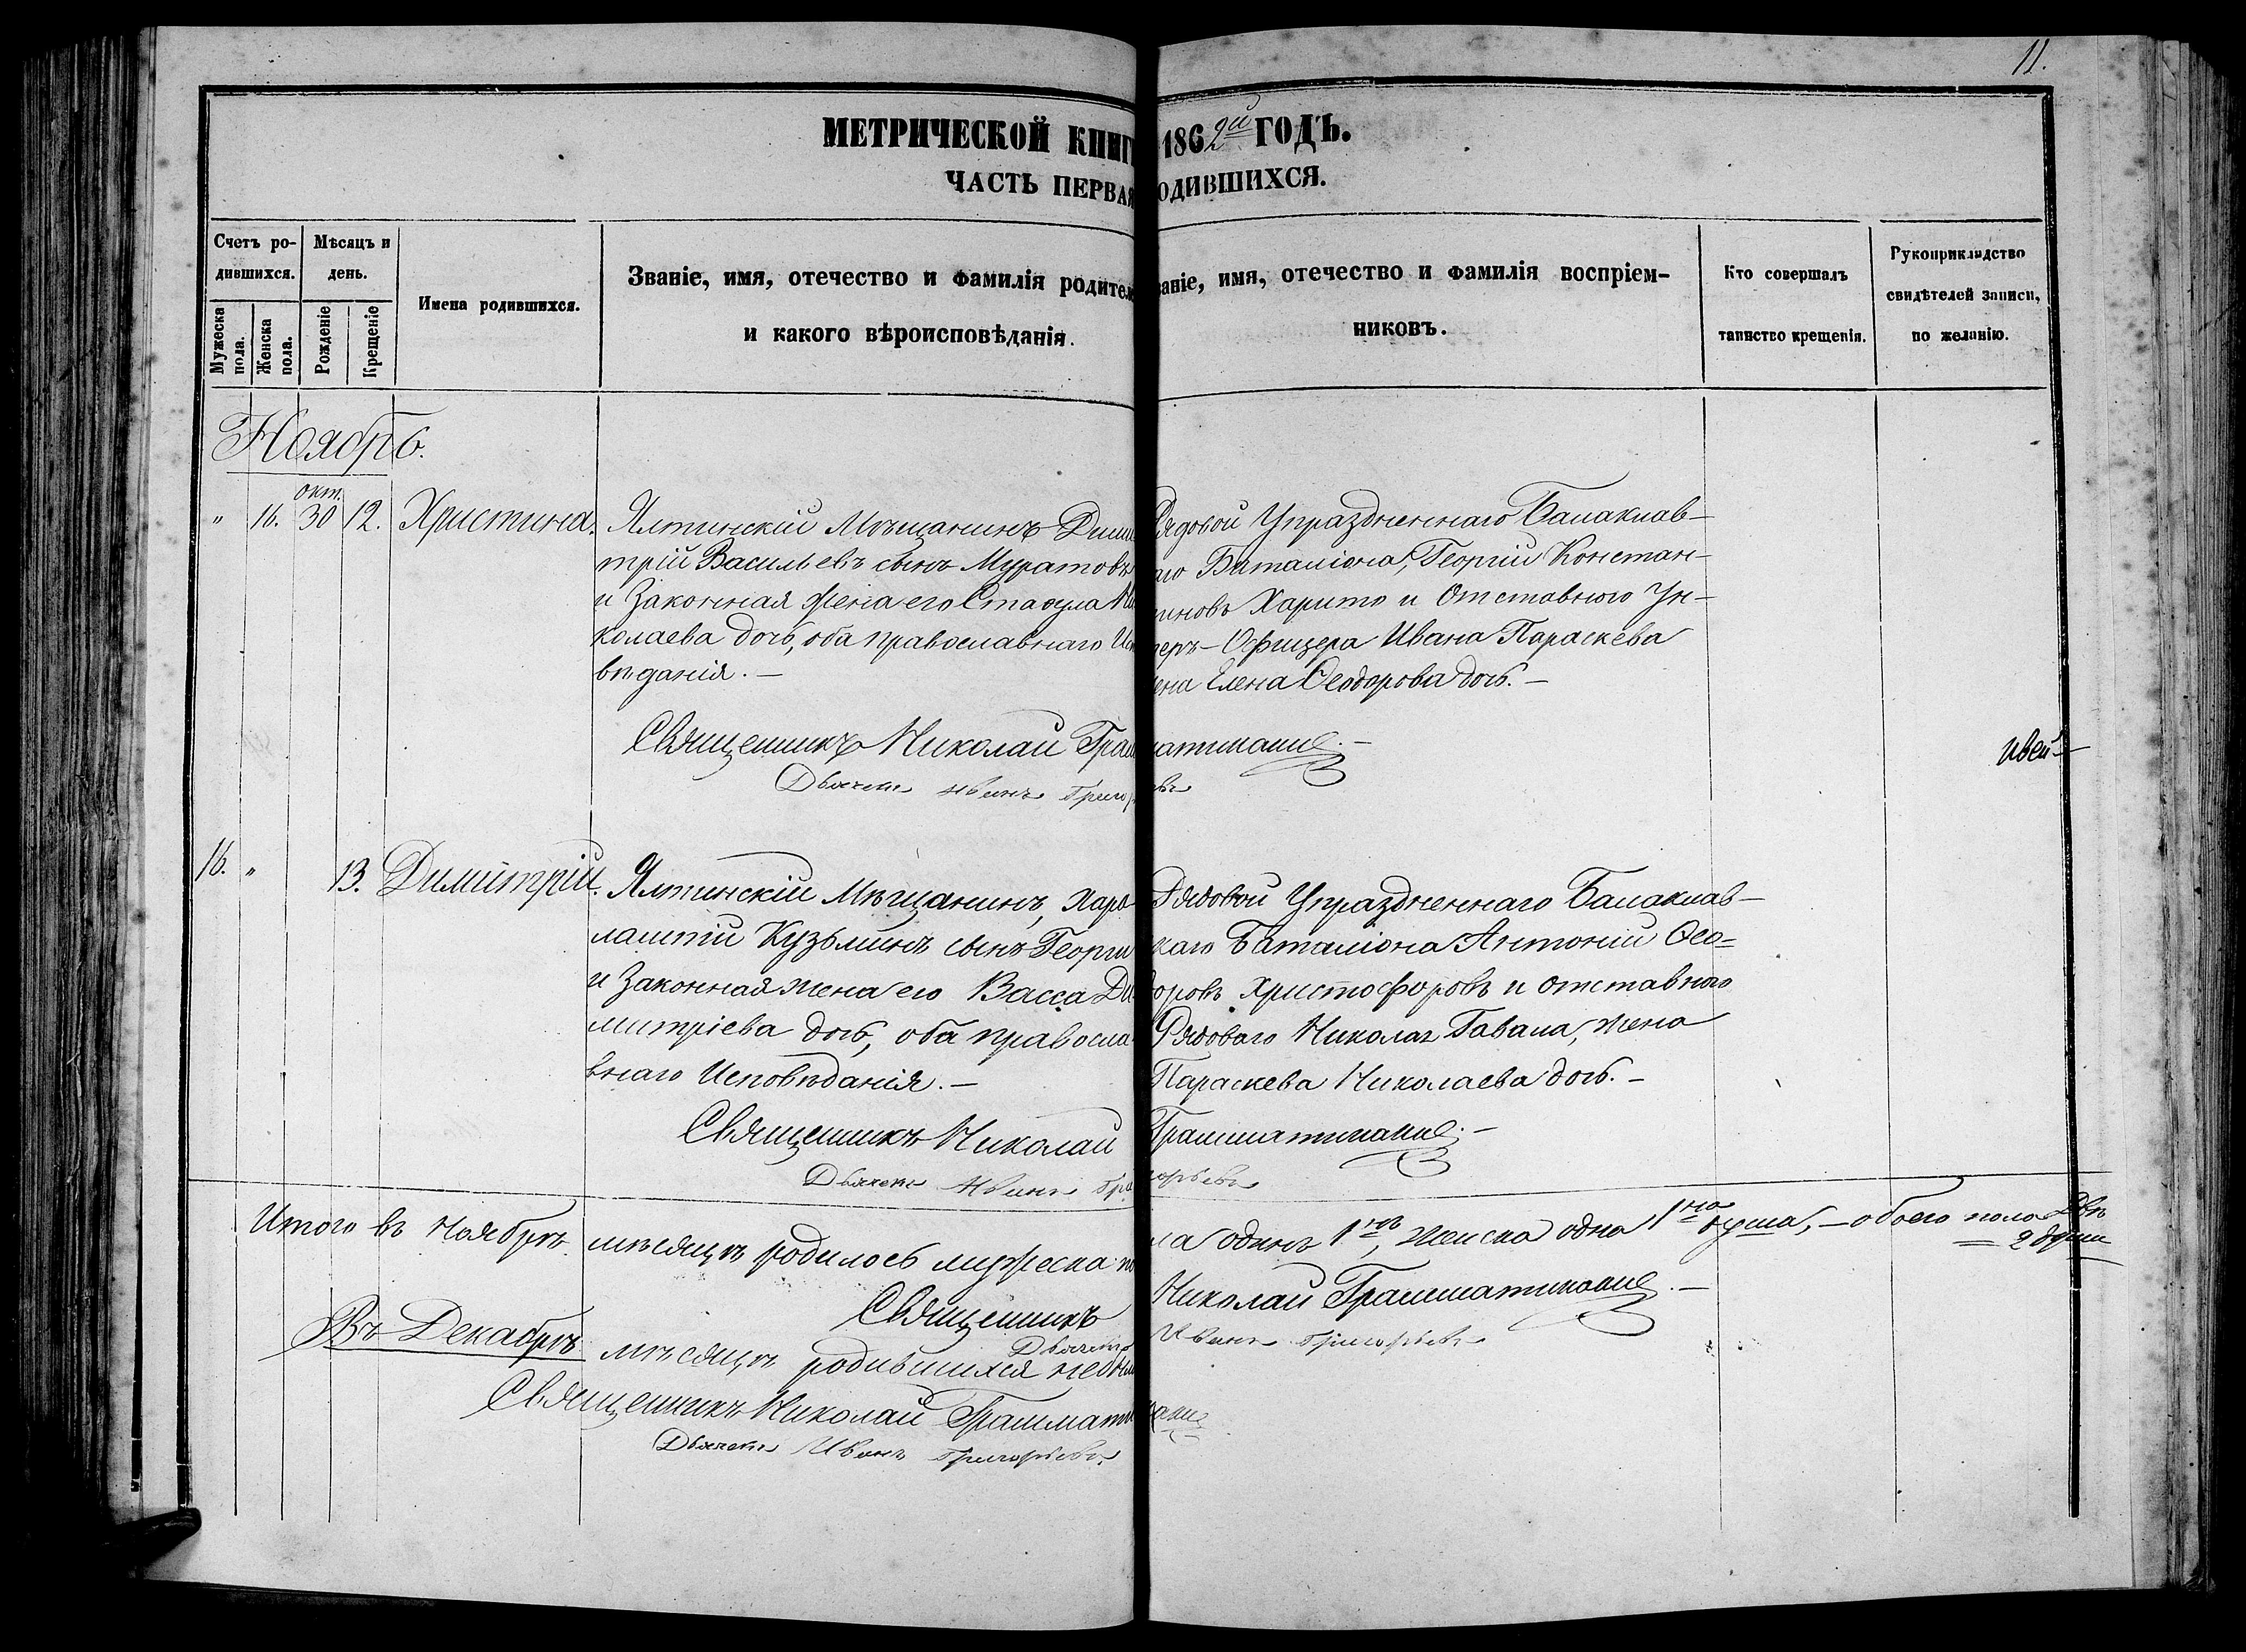 11.
МЕТРИЧЕСКОЙ КНИГ 1862й ГОДЪ.
ЧАСТЬ ПЕРВАЯ ОДИВШИХСЯ.
Счетъ ро-
дившихся.
Мужеска пола.
Женска пола.
Мѣсяцъ и
день.
Рожденіе
Крещеніе
Имена родившихся.
Званіе, имя, отечество и фамилія родител
и какого вѣроисповѣданія.
ваніе, имя, отечество и фамилія воспріем-
никовъ.
Кто совершалъ
таинство крещенія.
Рукоприкладство
свидѣтелей записи,
по желанію.
Ноябрь.
" 16. окт. 30 12. Христина.
Ялтинскій Мѣщанинъ Дими
трій Васильевъ сынъ Муратовъ
и Законная жена его Стаѳула Ни
колаева дочь, оба православнаго Ис
вѣданія. —
Рядовой Упраздненнаго Балаклав-
аго Баталіона, Георгій Констан-
иновъ Харито и Отставного Ун-
еръ-Офицера Ивана Параскева
ена Елена Ѳеодорова дочь. —
Священникъ Николай Грам матикаки. —
Дьячекъ Иванъ Григор евъ
16. " 13. Димитрій.
Ялтинскій Мѣщанинъ, Хара
лампій Кузьминъ сынъ Георги
и Законная жена его Васса Ди
митріева дочь, оба правосла
внаго Исповѣданія. —
Рядовой Упраздненнаго Балаклав-
каго Баталіона Антоній Ѳео=
оровъ Христофоровъ и отставного
Рядоваго Николая Гавала, жена
Параскева Николаева дочь. —
Священникъ Николай Грамматикаки. —
Дьячекъ Иванъ Гри горьевъ
Итого въ Ноябрѣ мѣсяцѣ родилось мужеска по ла одинъ 1нъ, женска одна 1на душа, — обоего пола Двѣ
2 души
Священникъ Николай Грамматикаки. —
Дьячекъ Иванъ Григорьевъ
Въ Декабрѣ мѣсяцѣ родившихся не
Священникъ Николай Граммати каки
Дьячекъ Иванъ Григорьевъ.